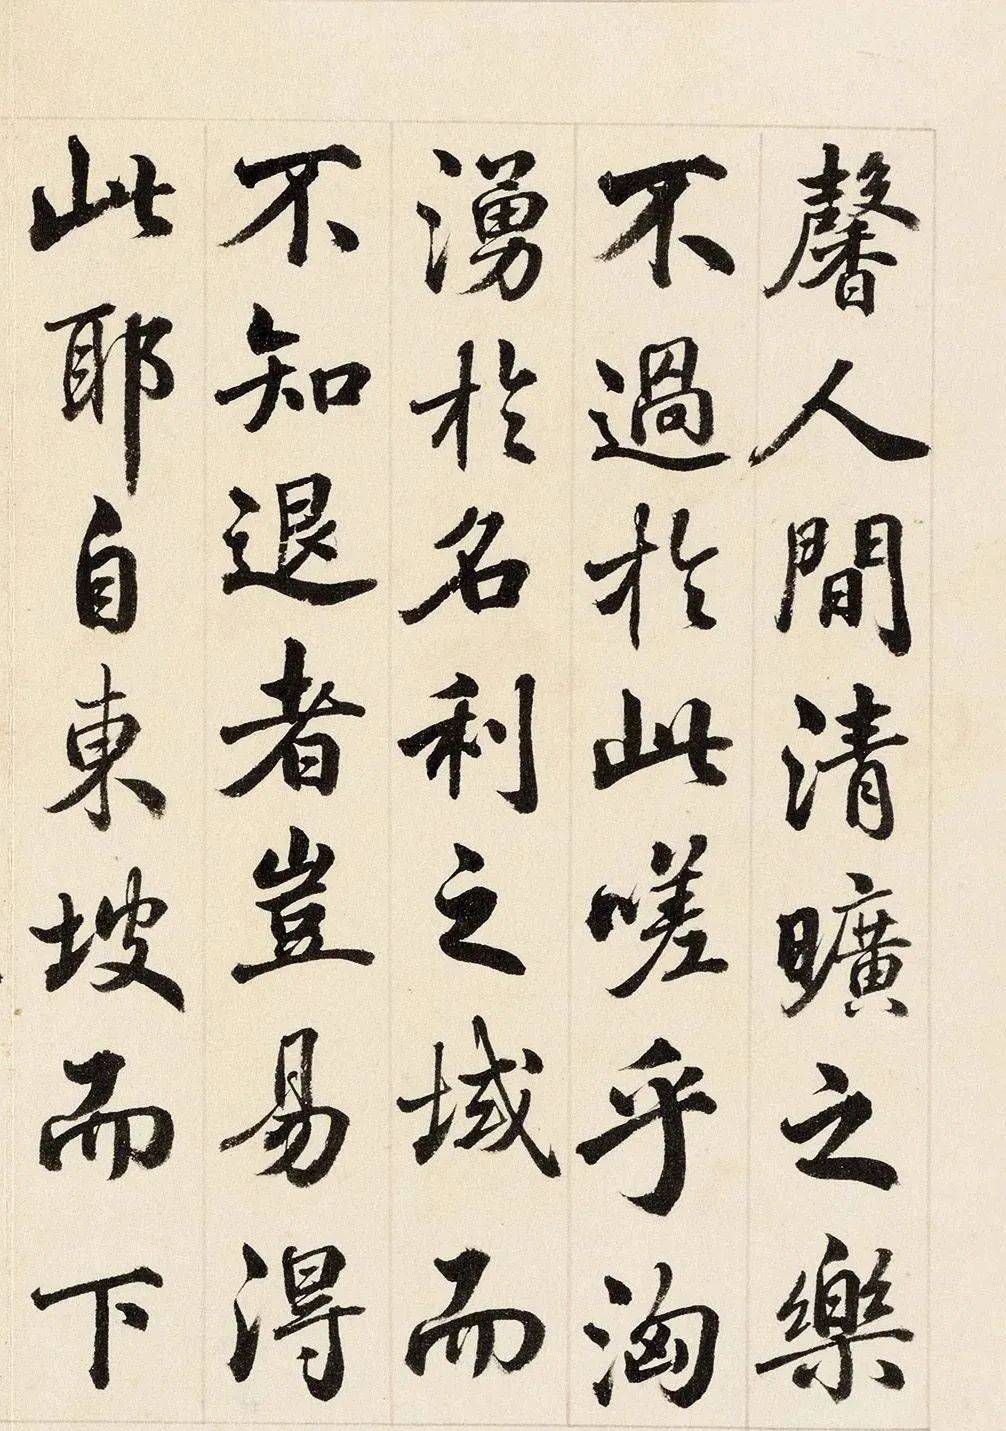 馨人間清曠之樂
不過於此嗟乎洶
湧於名利之域而
不知退者豈易得
此耶自東坡而下